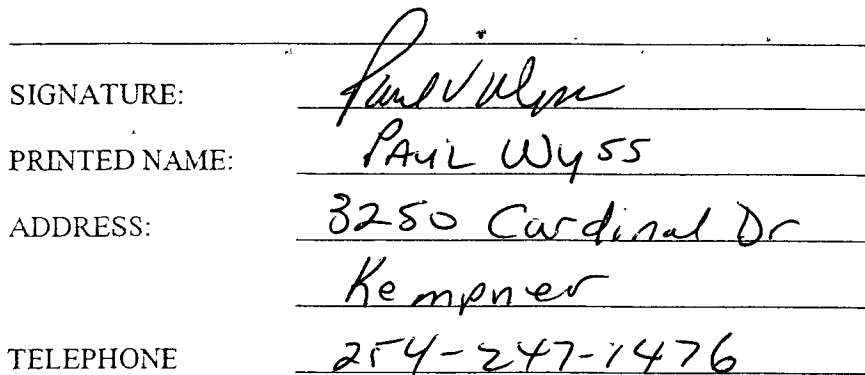 SIGNATURE: Paul V Wyss
PRINTED NAME: PAUL Wyss
ADDRESS: 3250 Cardinal Dr
Kempner
TELEPHONE 254-247-1476